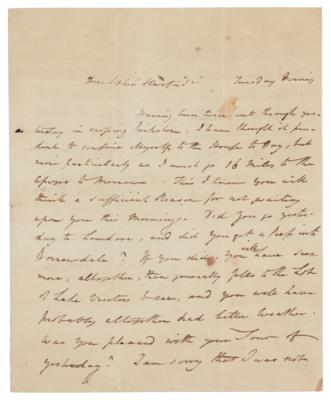 Tuesday Evening
Having been twice wet through yes-
terday in crossing Kirkstone, I have thought it pru-
dent to confine Myself to the House to Day, but
more particularly as I must go 16 Miles to the
to Morrow. This I know you will
think a sufficient Reason for not waiting
upon you this Morning. Did you go yester-
day to Lowdore, and did you get a Peep into
Borrowdale? If you did, you will have seen
more, altogether, than generally falls to the Lot
of Lake Visitors to see, and you will have
probably altogether had better Weather.
Was you pleased with your Tour of
yesterday? I am sorry that I was not